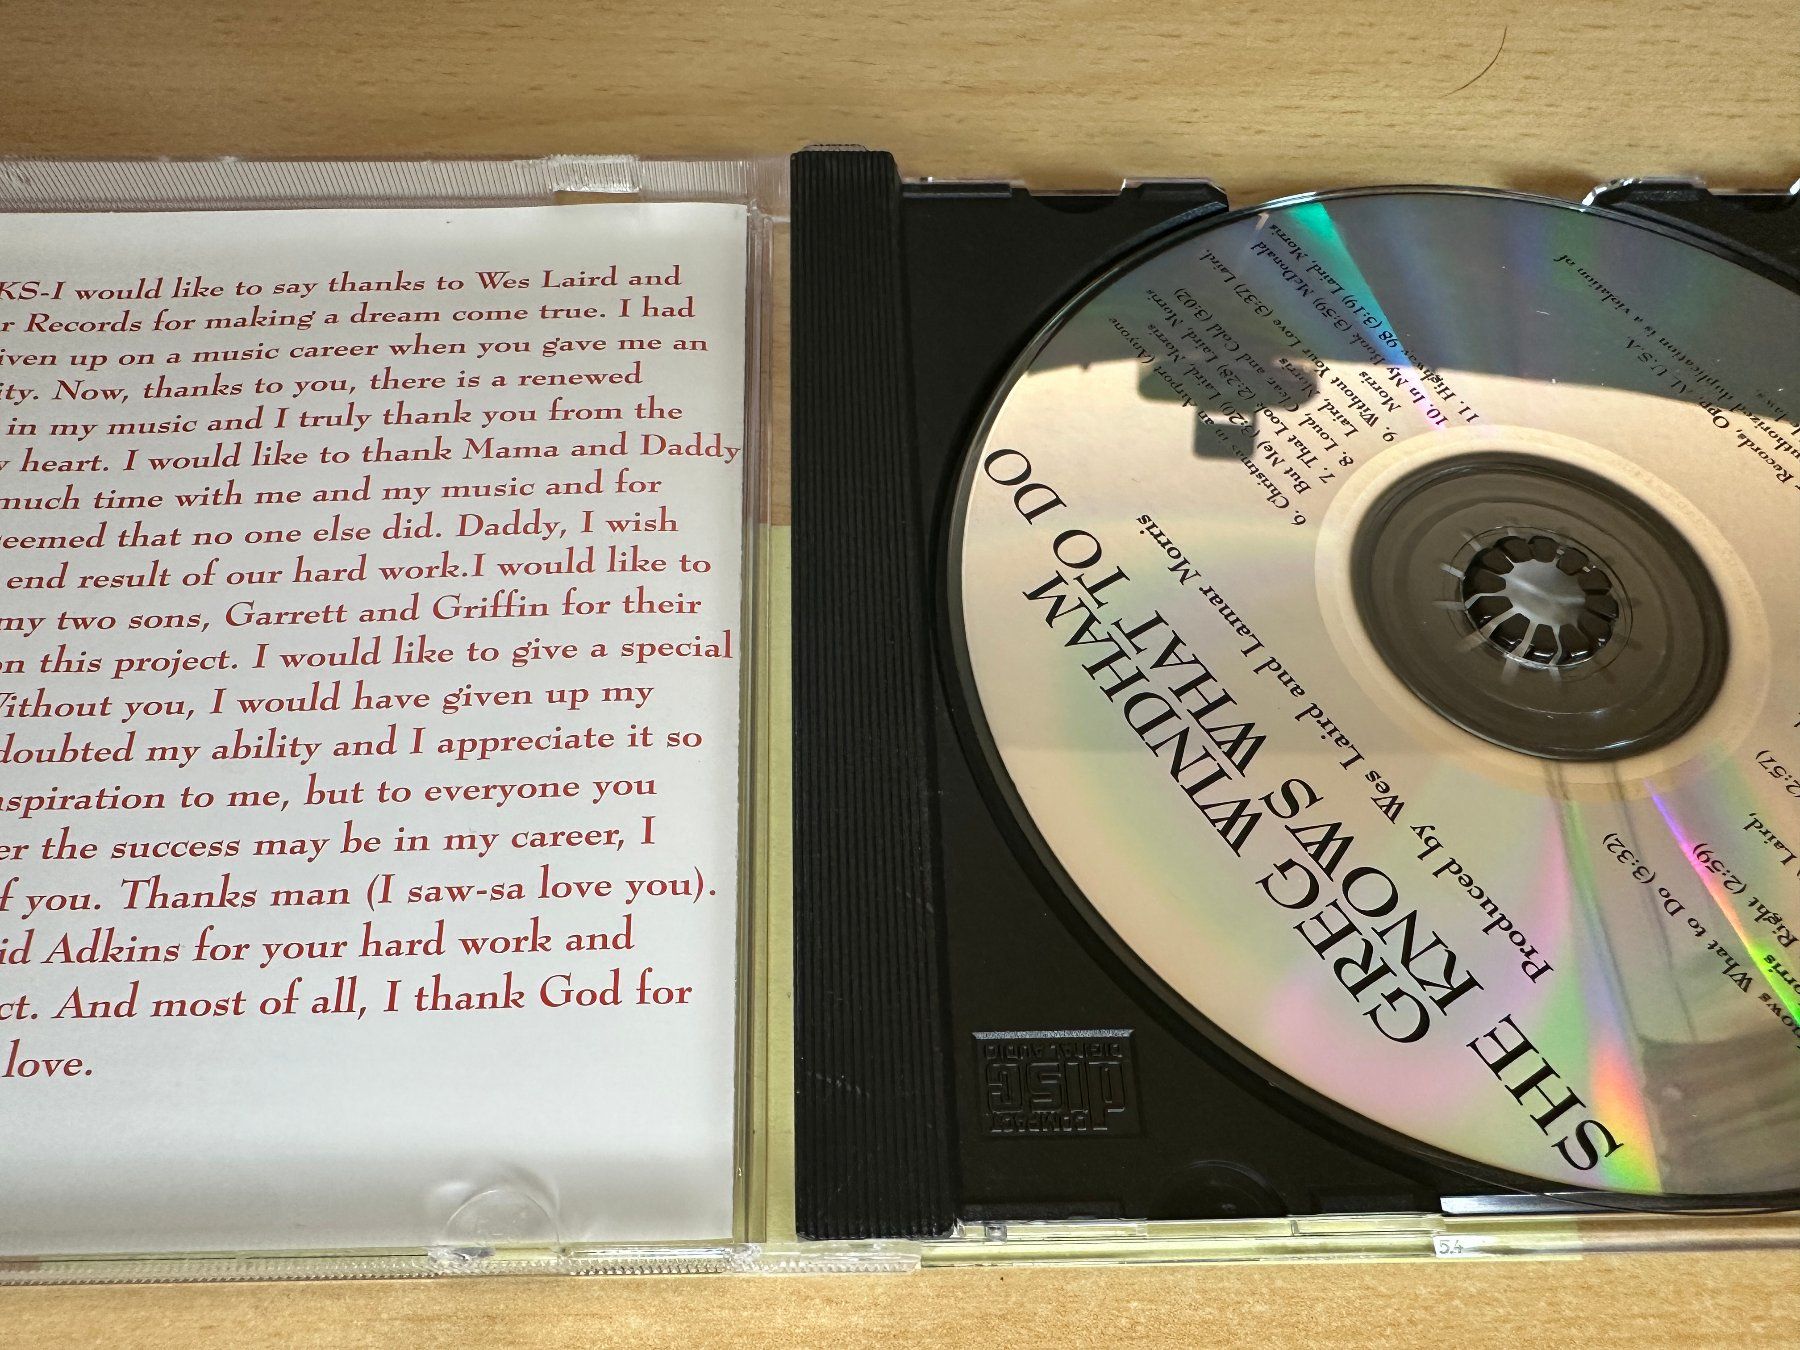 KS-I would like to say thanks to Wes Laird and
r Records for making a dream come true. I had
iven up on a music career when you gave me an
ity. Now, thanks to you, there is a renewed
in my music and I truly thank you from the
heart. I would like to thank Mama and Daddy
much time with me and my music and for
seemed that no one else did. Daddy, I wish
end result of our hard work.I would like to
my two sons, Garrett and Griffin for their
on this project. I would like to give a special
Without you, I would have given up my
doubted my ability and I appreciate it so
nspiration to me, but to everyone you
er the success may be in my career, I
f you. Thanks man (I saw-sa love you).
id Adkins for your hard work and
ct. And most of all, I thank God for
love.
GREG WINDHAM
SHE KNOWS WHAT TO DO
Produced by Wes Laird and Lamar Morris
What to Do (3:32)
Right (2:59)
Laird,
(2:57)
6. Christmas in an Airport (Anyone
But Me) (3:20) Laird, Morris
7. That Look (2:28) Laird, Morris
8. Loud, Clear and Cold (3:02)
Laird, Morris
9. Without Your Love (3:37) Laird,
Morris
10. In My Book (3:59) McDonald
11. Highway 98 (3:19) Laird, Morris
Records, Opp, AL U.S.A
duplication is a violation of
laws.
COMPACT
disc
DIGITAL AUDIO
54